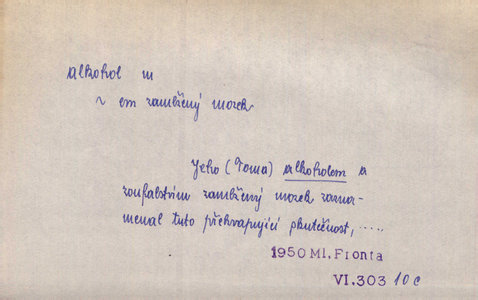 alkohol m
~ em zamlžený mozek
Jeho (Toma) alkoholem a
zoufalstvím zamlžený mozek zazna-
menal tuto překvapující skutečnost, .....
1950 Ml. Fronta
VI. 303 10 c